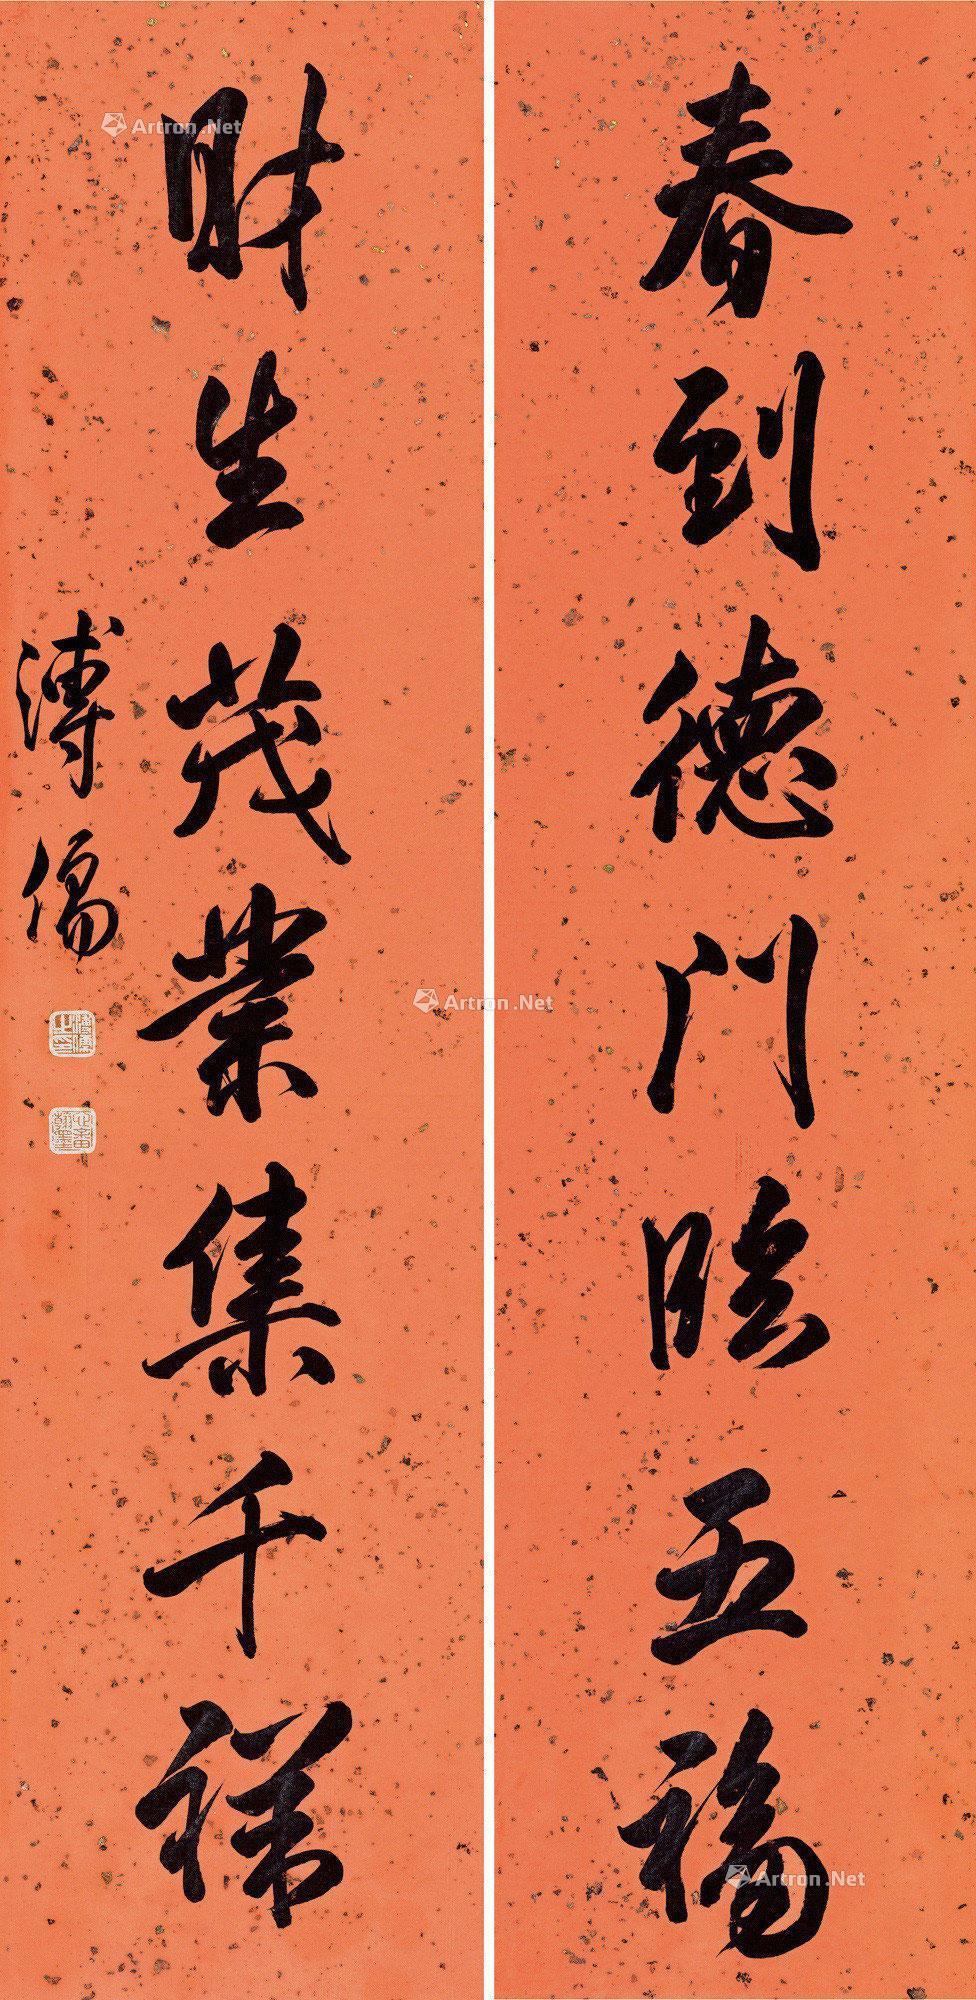 春到德門臨五福
財生茂業集千祥
溥儒
溥儒之印
Artron.Net
Artron.Net
Artron.Net